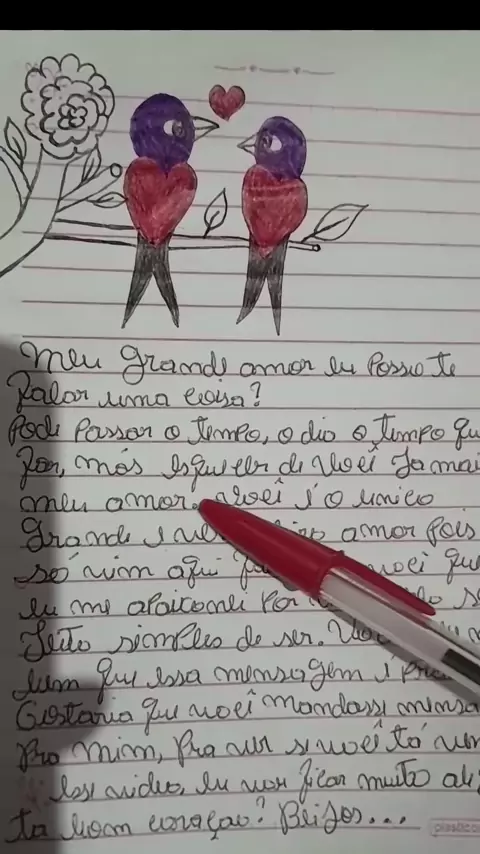 Meu grande amor eu posso te
falar uma coisa?
Pode passar o tempo, o dia o tempo qu
for, mas esquecer de você Jamai
meu amor. você é o unico
Grande amor pois
só vim aqui você que
eu me apaixonei por
Jeito simples de ser.
que essa mensagem é
Gostaria que você mandasse mensa
Pro mim, pra ver si você tá
esse video, eu vou ficar muito
ta bom coração? Beijos...